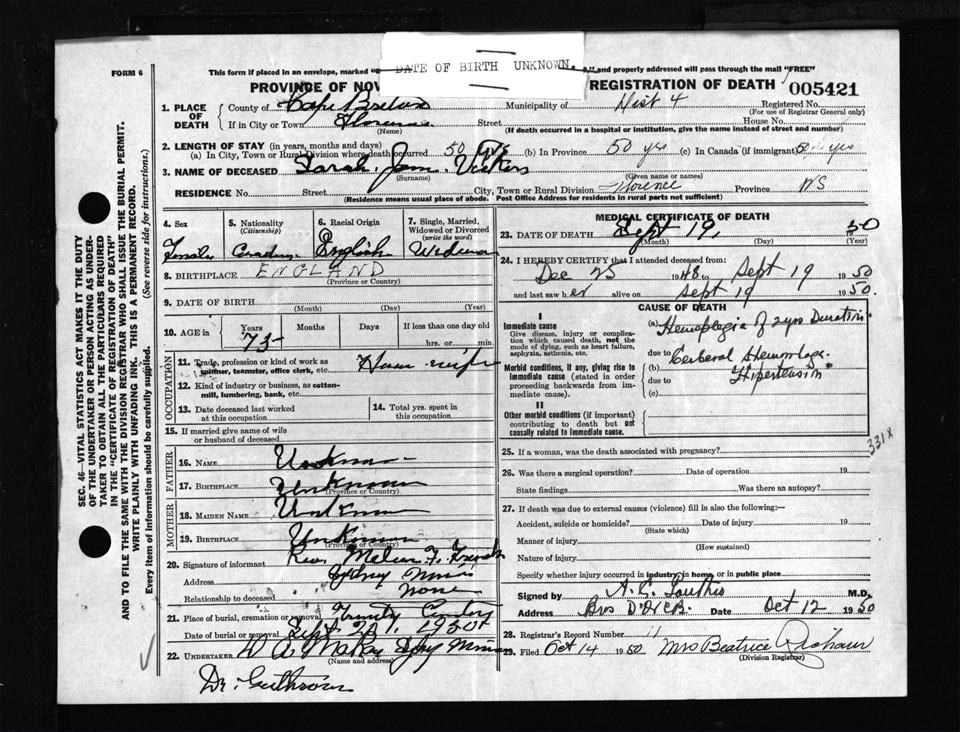 FORM 6
This form if placed in an envelope, marked "
DATE OF BIRTH UNKNOWN.
and properly addressed will pass through the mail "FREE"
PROVINCE OF NOV
REGISTRATION OF DEATH
005421
1. PLACE OF DEATH
County of Cape Breton
Municipality of Dist 4
Registered No.
(For use of Registrar General only)
If in City or Town Florence
Street
House No.
(Name)
(If death occurred in a hospital or institution, give the name instead of street and number)
2. LENGTH OF STAY (in years, months and days)
(a) In City, Town or Rural Division where death occurred 50 yrs (b) In Province 50 yrs (c) In Canada (if immigrant) 50 yrs
3. NAME OF DECEASED Sarah Jane Vickers
(Surname) (Given name or names)
RESIDENCE No. Street City, Town or Rural Division Florence Province NS
(Residence means usual place of abode. Post Office Address for residents in rural parts not sufficient)
4. Sex
Female
5. Nationality
(Citizenship)
Canadian
6. Racial Origin
English
7. Single, Married, Widowed or Divorced
(write the word)
Widow
8. BIRTHPLACE ENGLAND
(Province or Country)
9. DATE OF BIRTH
(Month) (Day) (Year)
10. AGE in
Years
75
Months
Days
If less than one day old
hrs. or min.
OCCUPATION
11. Trade, profession or kind of work as spinner, teamster, office clerk, etc. House wife
12. Kind of industry or business, as cotton-mill, lumbering, bank, etc.
13. Date deceased last worked at this occupation
14. Total yrs. spent in this occupation
15. If married give name of wife or husband of deceased
FATHER
16. NAME Unknown
17. BIRTHPLACE Unknown
(Province or Country)
MOTHER
18. MAIDEN NAME Unknown
19. BIRTHPLACE Unknown
(Province or Country)
20. Signature of informant Rev.
Address Sydney Mines
Relationship to deceased None
21. Place of burial, cremation or removal Trinity
Date of burial or removal Sept 1950
22. UNDERTAKER W A McKay Syd Mines
(Name and address)
Dr.
MEDICAL CERTIFICATE OF DEATH
23. DATE OF DEATH Sept 19, 50
(Month) (Day) (Year)
24. I HEREBY CERTIFY that I attended deceased from:
Dec 25 1948 to Sept 19 1950
and last saw her alive on Sept 19 1950.
CAUSE OF DEATH
I
Immediate cause
Give disease, injury or complication which caused death, not the mode of dying, such as heart failure, asphyxia, asthenia, etc.
(a) Hemiplegia of 2 yrs Duration
Morbid conditions, if any, giving rise to immediate cause (stated in order proceeding backwards from immediate cause).
due to
(b) Cerberal Hemorrhage
due to Hipertension
(c)
II
Other morbid conditions (if important) contributing to death but not causally related to immediate cause.
331X
25. If a woman, was the death associated with pregnancy?
26. Was there a surgical operation? Date of operation 19
State findings Was there an autopsy?
27. If death was due to external causes (violence) fill in also the following:—
Accident, suicide or homicide? Date of injury 19
(State which)
Manner of injury
(How sustained)
Nature of injury
Specify whether injury occurred in industry, in home, or in public place
Signed by M.D.
Address Date Oct 12 1950
28. Registrar's Record Number 11
29. Filed Oct 14 1950 Mrs Beatrice
(Division Registrar)
SEC. 46—VITAL STATISTICS ACT MAKES IT THE DUTY
OF THE UNDERTAKER OR PERSON ACTING AS UNDER-
TAKER TO OBTAIN ALL THE PARTICULARS REQUIRED
IN THE "CERTIFICATE OF REGISTRATION OF DEATH"
AND TO FILE THE SAME WITH THE DIVISION REGISTRAR WHO SHALL ISSUE THE BURIAL PERMIT.
WRITE PLAINLY WITH UNFADING INK. THIS IS A PERMANENT RECORD.
Every item of information should be carefully supplied. (See reverse side for instructions.)